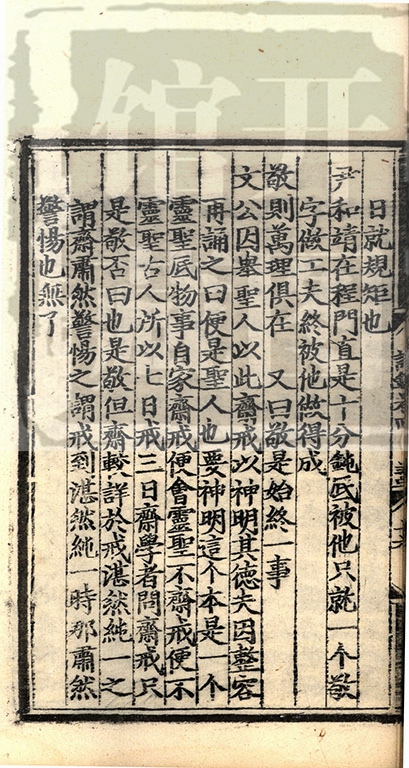 日就規矩也
尹和靖在程門直是十分鈍底被他只就一个敬
字做工夫終被他做得成
敬則萬理俱在　又曰敬是始終一事
文公因舉聖人以此齋戒以神明其德夫因整容
再誦之曰便是聖人也要神明這个本是一个
靈聖底物事自家齋戒便會靈聖不齋戒便不
靈聖古人所以七日戒三日齋學者問齋戒只
是敬否曰也是敬但齋較詳於戒湛然純一之
謂齋肅然警惕之謂戒到湛然純一時那肅然
警惕也無了